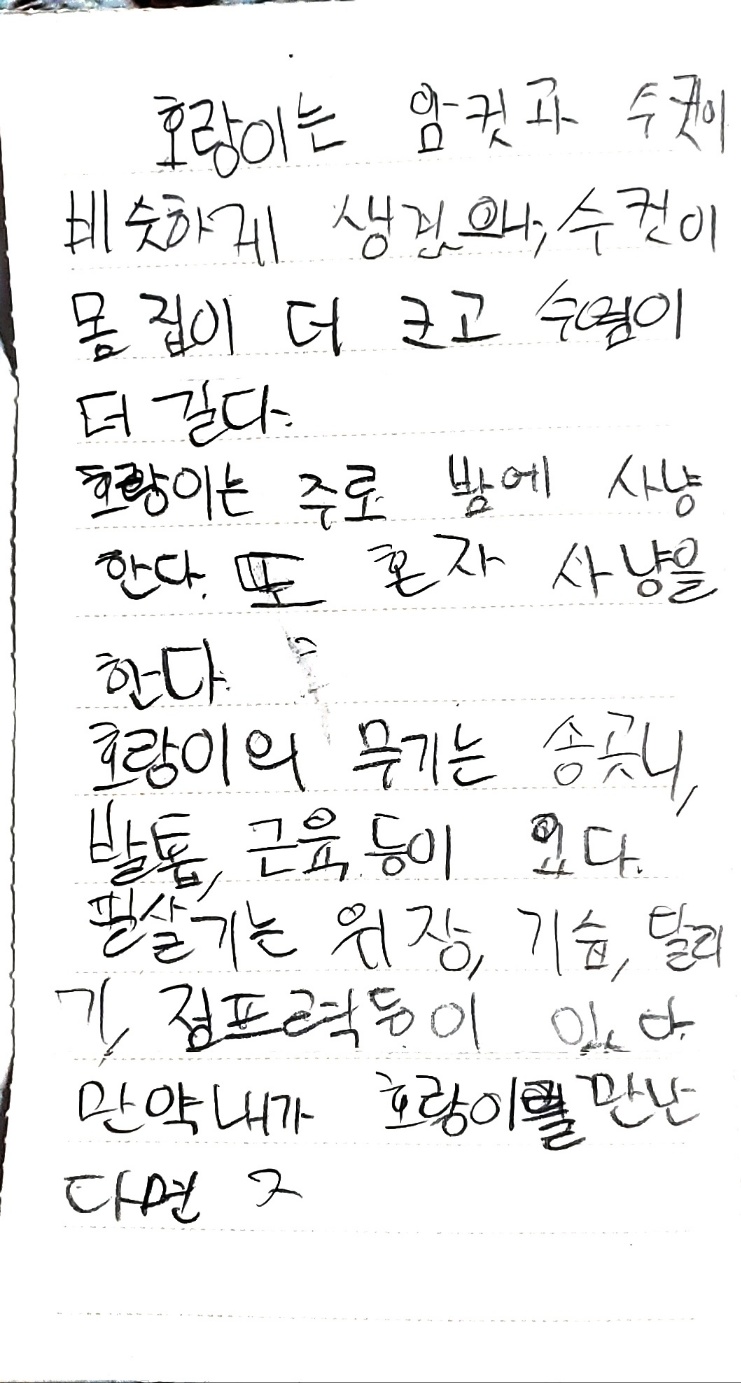 호랑이는 암컷과 수컷이
비슷하게 생겼으나, 수컷이
몸집이 더 크고 수염이
더 길다.
호랑이는 주로 밤에 사냥
한다. 또 혼자 사냥을
한다.
호랑이의 무기는 송곳니,
발톱, 근육 등이 있다.
필살기는 위장, 기습, 달리
기, 점프력등이 있다.
만약내가 호랑이를 만난
다면